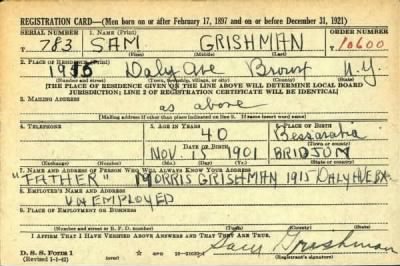 REGISTRATION CARD—(Men born on or after February 17, 1897 and on or before December 31, 1921)
SERIAL NUMBER 1. NAME (Print) ORDER NUMBER
783 SAM GRISHMAN 10600
(First) (Middle) (Last)
2. PLACE OF RESIDENCE (Print)
Daly Ave Bronx N.Y.
(Number and street) (Town, township, village, or city) (County) (State)
[THE PLACE OF RESIDENCE GIVEN ON THE LINE ABOVE WILL DETERMINE LOCAL BOARD
JURISDICTION; LINE 2 OF REGISTRATION CERTIFICATE WILL BE IDENTICAL]
3. MAILING ADDRESS
as above
[Mailing address if other than place indicated on line 2. If same insert word same]
4. TELEPHONE 5. AGE IN YEARS 6. PLACE OF BIRTH
40 Bessarabia
DATE OF BIRTH (Town or county)
NOV. 1901
(Exchange) (Number) (Mo.) (Day) (Yr.) (State or country)
7. NAME AND ADDRESS OF PERSON WHO WILL ALWAYS KNOW YOUR ADDRESS
"FATHER" MORRIS GRISHMAN 1915 DALY AVE BX
8. EMPLOYER'S NAME AND ADDRESS
UNEMPLOYED
9. PLACE OF EMPLOYMENT OR BUSINESS
(Number and street or R. F. D. number) (Town) (County) (State)
I AFFIRM THAT I HAVE VERIFIED ABOVE ANSWERS AND THAT THEY ARE TRUE.
D. S. S. Form 1
(Revised 1-1-42) GPO Sam Grishman